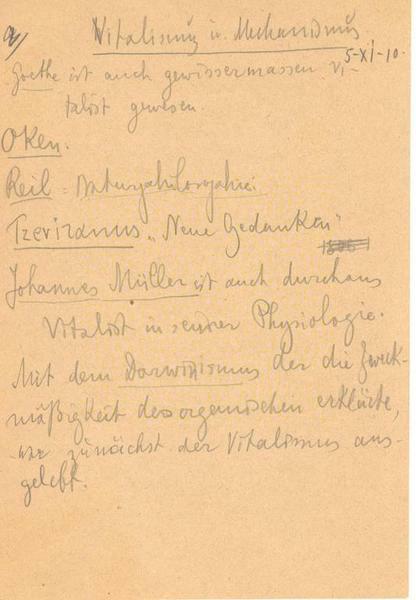 2/ Vitalismus u. Mechanismus
5-XI-10.
Goethe ist auch gewissermassen Vi-
talist gewesen.
Oken.
Reil = Naturphilosophie.
Trevizanus „Neue Gedanken"
Johannes Müller ist auch durchaus
Vitalist in seiner Physiologie.
Mit dem Darwinismus der die Zweck-
mäßigkeit des organischen erklärte,
war zunächst der Vitalismus aus-
gelebt.